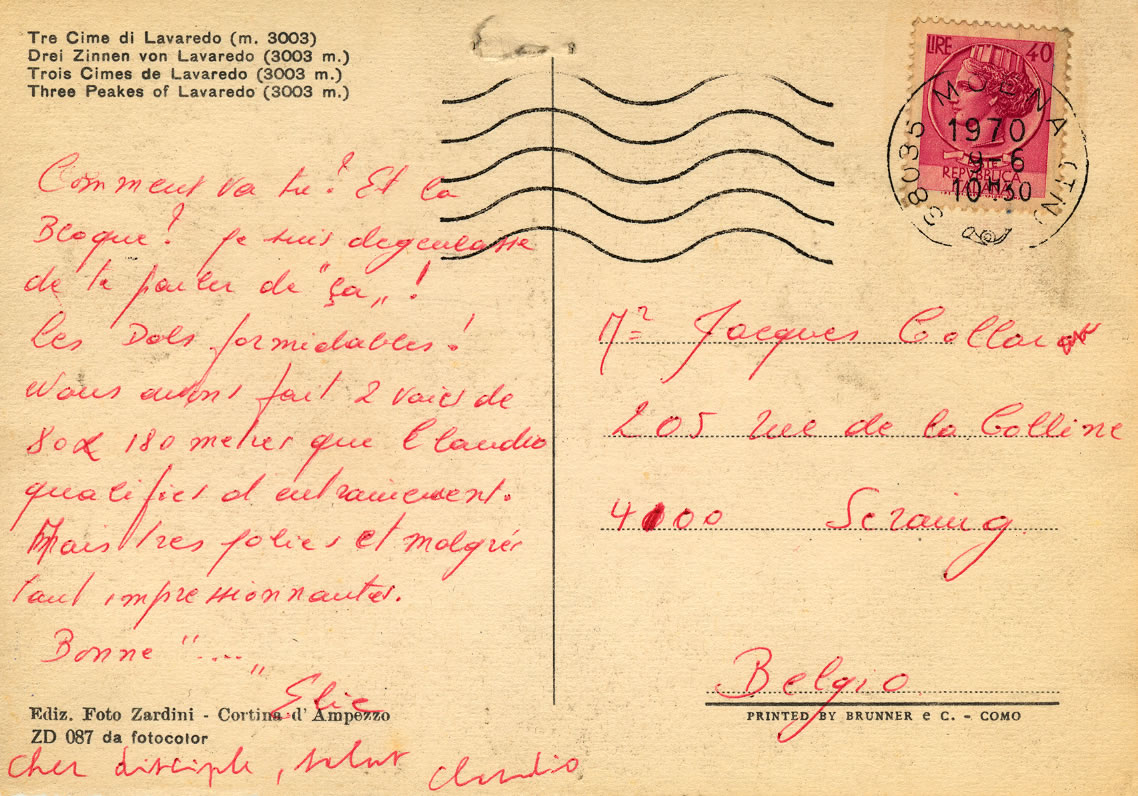 Tre Cime di Lavaredo (m. 3003)
Drei Zinnen von Lavaredo (3003 m.)
Trois Cimes de Lavaredo (3003 m.)
Three Peakes of Lavaredo (3003 m.)
Comment va tu? Et la
Bloque? je suis degeulasse
de te parler de "ça„!
Les Dols formidables!
Nous avons fait 2 voies de
80 180 metres que Claudio
qualifies d entrainement.
Mais tres jolies et malgrés
tout impressionnantes.
Bonne "....„
Elie
Ediz. Foto Zardini - Cortina d'Ampezzo
ZD 087 da fotocolor
cher disciple, salut Claudio
LIRE 40
REPVBBLICA
38035 MOENA (TN)
1970
9-6
10H30
Mr Jacques
205 rue de la Colline
4100 Seraing
Belgio
PRINTED BY BRUNNER e C. - COMO